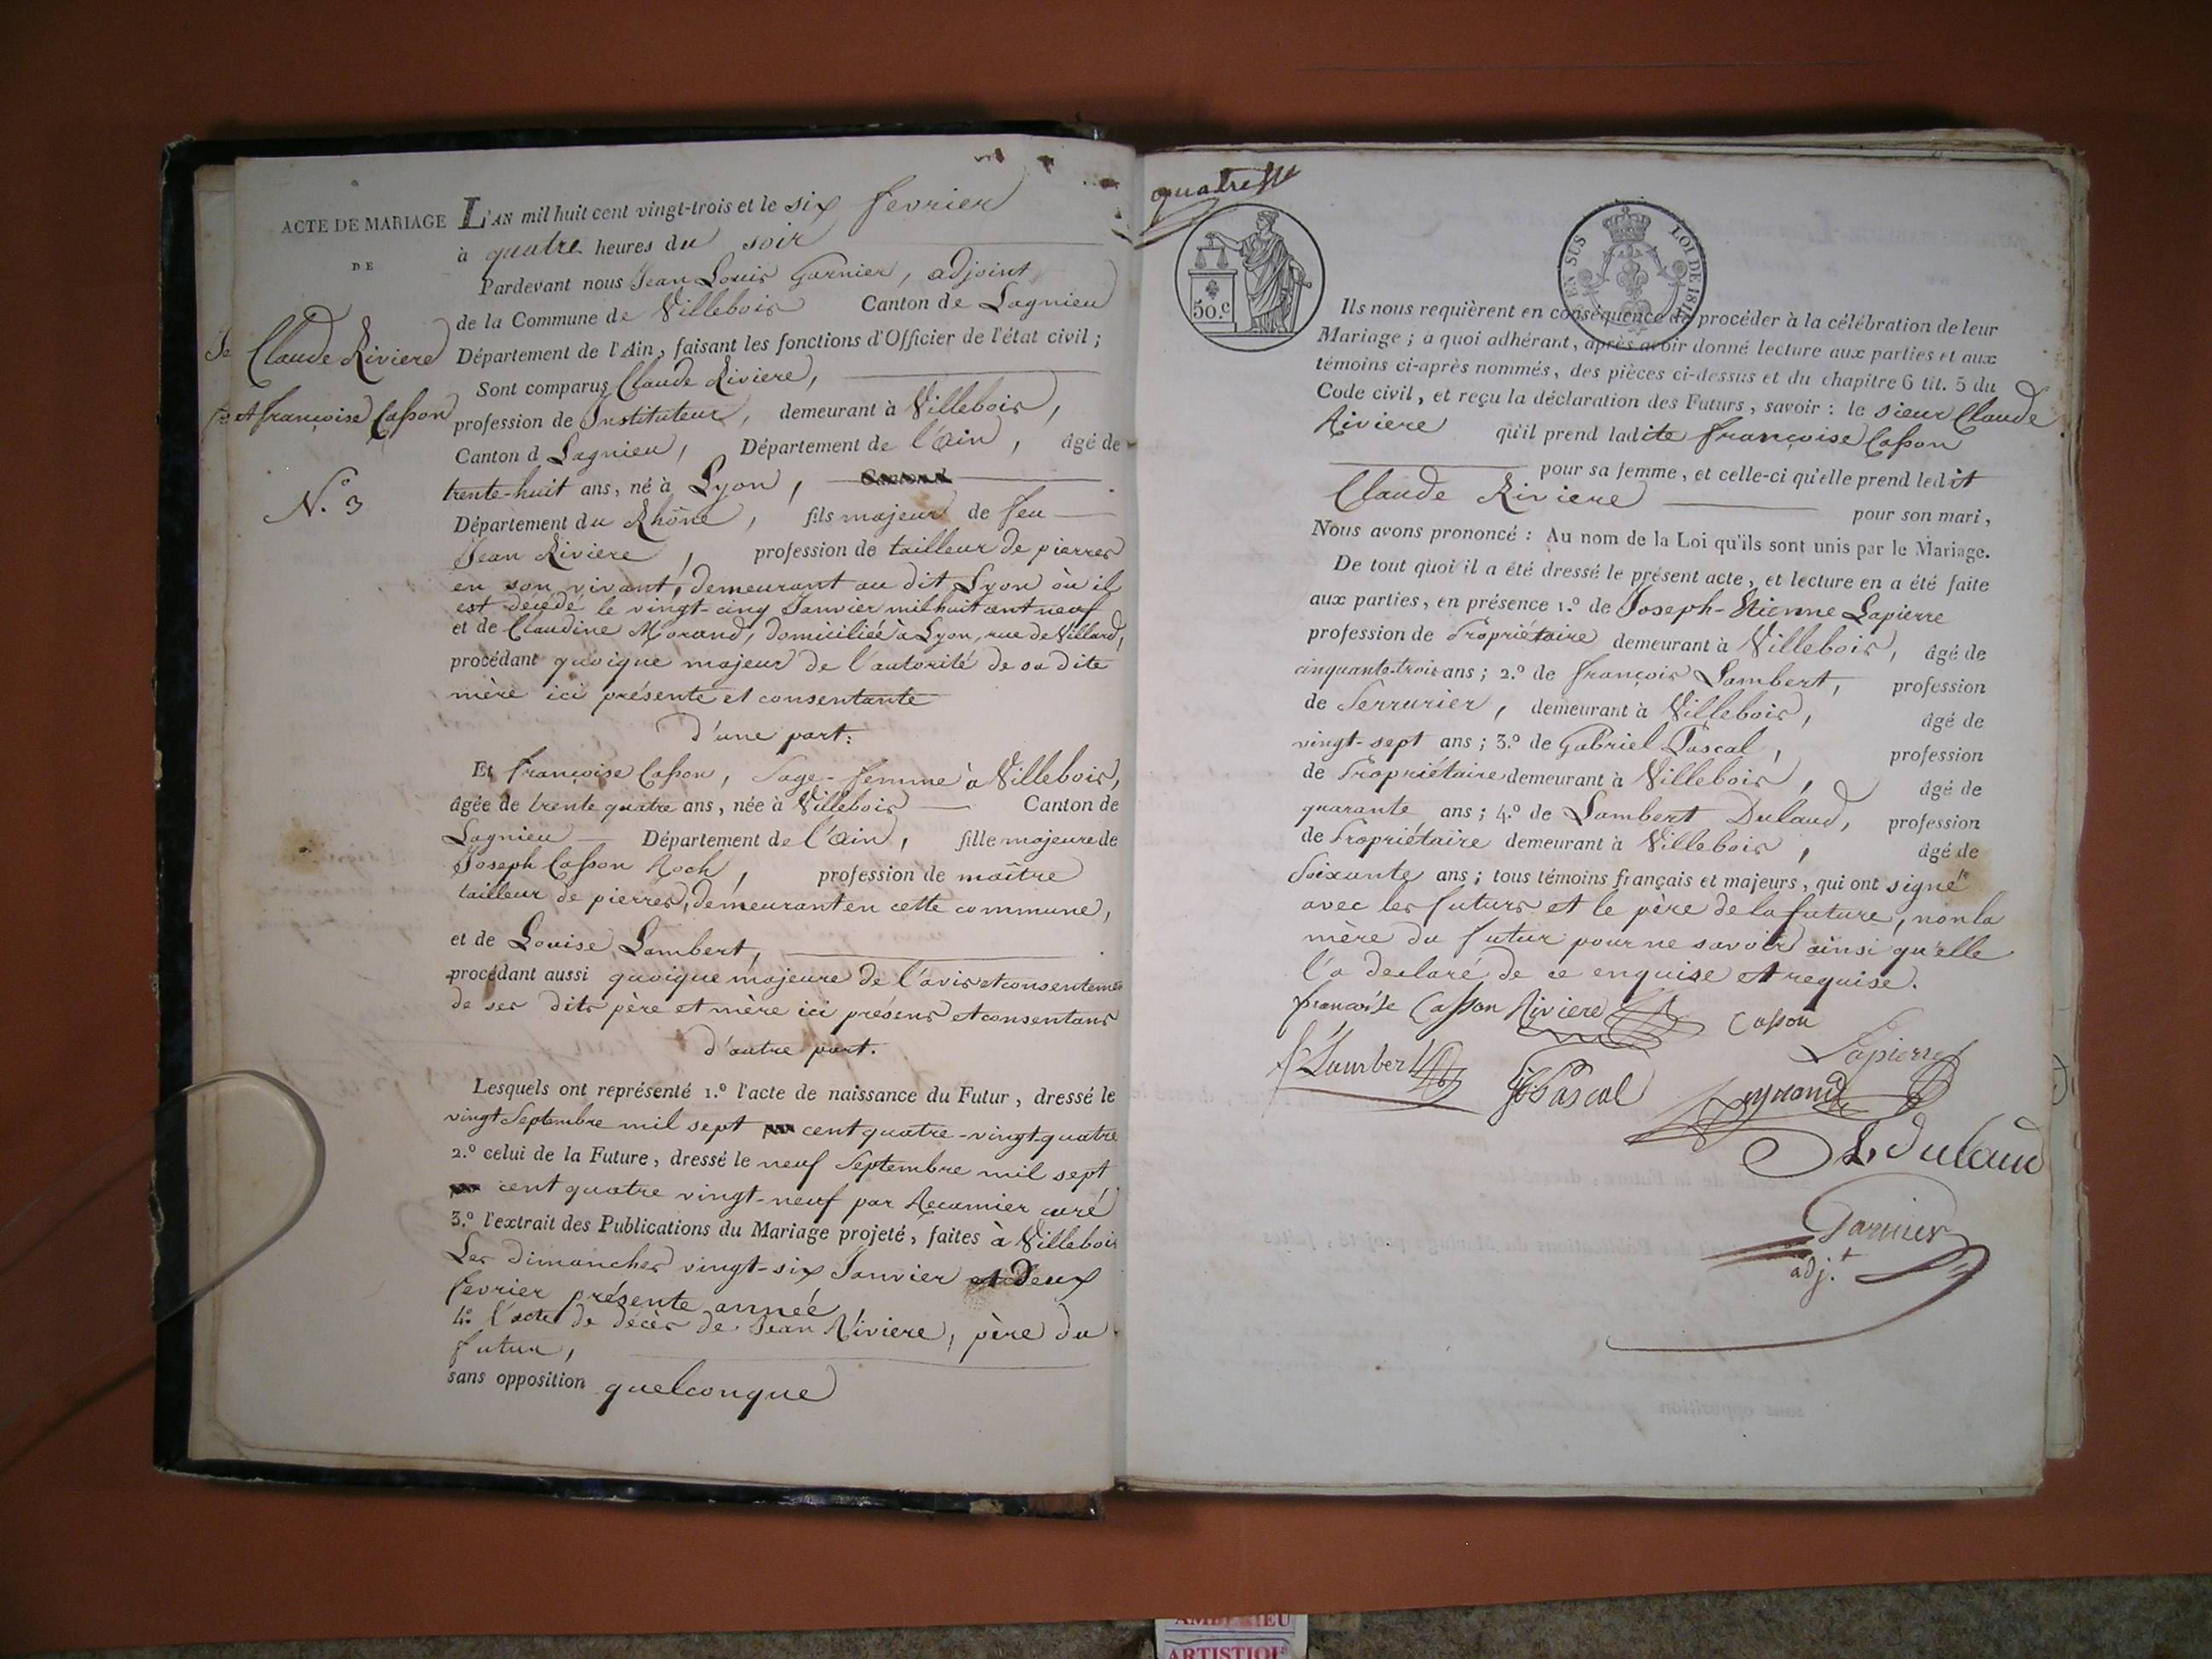 ACTE DE MARIAGE
DE
Claude Riviere
et françoise Casson
N.° 3
L'AN mil huit cent vingt-trois et le six fevrier
à quatre heures du soir
Pardevant nous Jean Louis Garnier, adjoint
de la Commune de Villebois Canton de Lagnieu
Département de l'Ain, faisant les fonctions d'Officier de l'état civil ;
Sont comparus Claude Riviere,
profession de Instituteur, demeurant à Villebois,
Canton d Lagnieu, Département de l'ain, âgé de
trente-huit ans, né à Lyon,
Département du Rhône, fils majeur de feu
Jean Riviere, profession de tailleur de pierres
en son vivant, demeurant au dit Lyon où il
est décédé le vingt-cinq Janvier mil huit cent neuf
et de Claudine Morand, domiciliée à Lyon, rue de Villard,
procédant quoique majeur de l'autorité de sa dite
mère ici présente et consentante
d'une part:
Et françoise Casson, Sage-femme à Villebois,
âgée de trente quatre ans, née à Villebois Canton de
Lagnieu Département de l'ain, fille majeure de
Joseph Casson Roch, profession de maître
tailleur de pierres, demeurant en cette commune,
et de Louise Lambert,
procédant aussi quoique majeure de l'avis et consenteme
de ses dits père et mère ici présens et consentans
d'autre part.
Lesquels ont représenté 1.° l'acte de naissance du Futur, dressé le
vingt Septembre mil sept cent quatre-vingt-quatre
2.° celui de la Future, dressé le neuf Septembre mil sept
cent quatre vingt-neuf par Recamier curé
3.° l'extrait des Publications du Mariage projeté, faites à Villebois
Les dimanches vingt-six Janvier et deux
fevrier présente année
4.° l'acte de décès de Jean Riviere, père du
futur,
sans opposition quelconque
quatre
50.c
EN SUS LOI DE 1816
Ils nous requièrent en conséquence de procéder à la célébration de leur
Mariage ; à quoi adhérant, après avoir donné lecture aux parties et aux
témoins ci-après nommés, des pièces ci-dessus et du chapitre 6 tit. 5 du
Code civil, et reçu la déclaration des Futurs, savoir : le sieur Claude
Riviere qu'il prend ladite françoise Casson
pour sa femme, et celle-ci qu'elle prend ledit
Claude Riviere pour son mari,
Nous avons prononcé : Au nom de la Loi qu'ils sont unis par le Mariage.
De tout quoi il a été dressé le présent acte, et lecture en a été faite
aux parties, en présence 1.° de Joseph-Etienne Lapierre
profession de Propriétaire demeurant à Villebois, âgé de
cinquante-trois ans ; 2.° de françois Lambert, profession
de Serrurier, demeurant à Villebois, âgé de
vingt-sept ans ; 3.° de Gabriel Pascal, profession
de Propriétaire demeurant à Villebois, âgé de
quarante ans ; 4.° de Lambert Dulaud, profession
de Propriétaire demeurant à Villebois, âgé de
Soixante ans ; tous témoins français et majeurs, qui ont signé
avec les futurs et le père de la future, non la
mère du futur pour ne savoir ainsi qu'elle
l'a declaré de ce enquise et requise.
francoise Casson Riviere Casson
Lapierre
f. Lambert G Pascal
L. dulaud
Garnier
adj.t
ARTISTIQUE